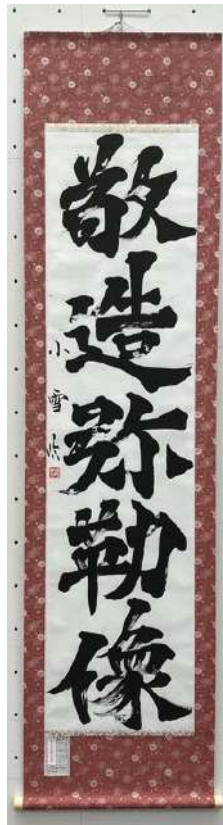 敬造弥勒像
小雪